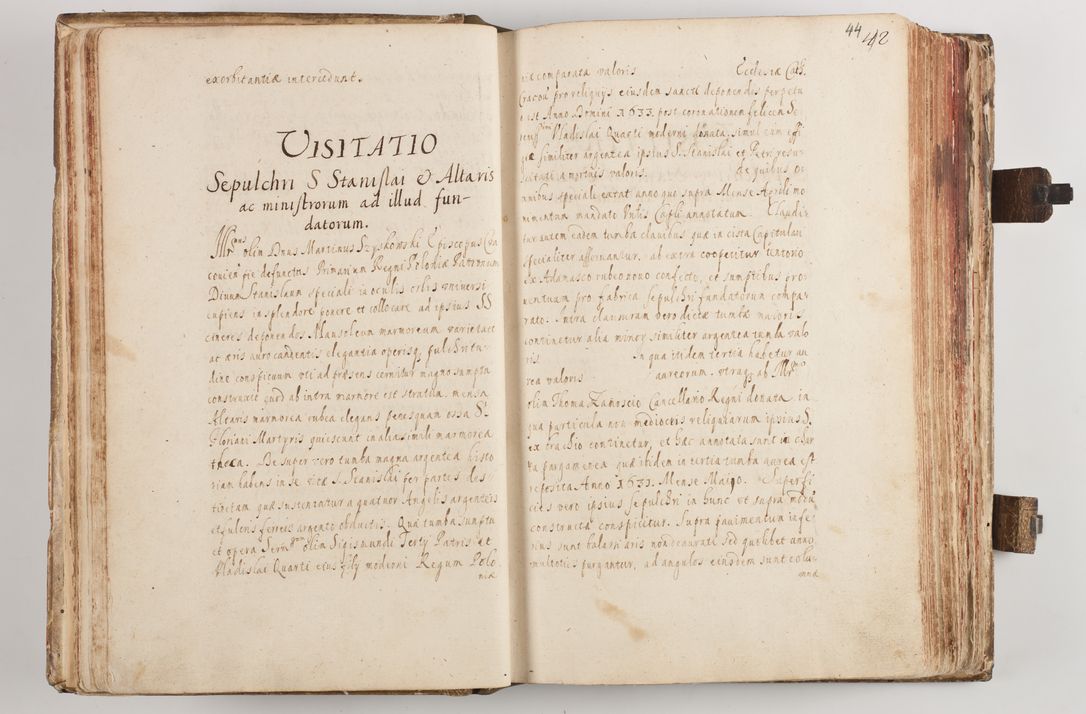 exorbitantiæ intercedunt.
VISITATIO
Sepulchri S Stanislai & Altaris
ac ministrorum ad illud fun-
datorum.
olim Dnus Martinus Szyskowski Episcopus Cra
couien pie defunctus Primarium Regni Poloniæ Patronum
Diuum Stanislaum speciali in oculis orbis vniuersi
cupiens in splendore ponere et collocare ad ipsius SS
cineres deponendos Mausoleum marmoreum varietate
ac æris auro candentis elegantia operisq pulchritu-
dine conspicuum vti ad præsens cernitur magno sumptu
construxit quod ab intra marmore est stratum. mensa
Altaris marmorea rubea elegans penes quam ossa S.
Floriani Martyris quiescunt in alia simili marmorea
theca. De super vero tumba magna argentea histo
riam habens in se vitæ S. Stanislai per partes des-
tinctam quæ sustentatur a quatuor Angelis argenteis
et fulcris ferreis argento obductis. Quæ tumba sumptu
et opera olim Sigismundi Tertÿ Patris et
Vladislai Quarti eius filÿ moderni Regum Polo
niæ
44 42
niæ comparata valoris Ecclesiæ Cath.
Cracou pro reliquÿs eiusdem sancti deponendis perpetu
o est Anno Domini 1633. post coronationem felicem Se
Vladislai Quarti moderni donata. simul cum effi
gie similiter argentea ipsius S. Stanislai et Petri resus
citati a mortuis valoris. de quibus o
mnibus speciale extat anno quo supra Mense Aprili mo
nimentum mandato annotatum. Claudi
tur autem eadem tumba clauibus quæ in cista Capitulari
specialiter asseruantur. ab extra cooperitur tentorio
ex Adamasco rubeo nouo confecto, et sumptibus pro
uentuum pro fabrica sepulchri fundatorum compa
rato. Intra clausuram vero dictæ tumbæ maioris
continetur alia minor similiter argentea tumba valo
ris In qua itidem tertia habetur au
rea valoris aureorum. vtraq ab
olim Thoma Zamoscio Cancellario Regni donata in
qua particula non mediocris reliquiarum ipsius S.
ex brachio continetur, et hæc annotata sunt in char
ta pargamenea quæ ibidem in tertia tumba aurea est
reposita Anno 1633. Mense Maÿo. Superfi
cies vero ipsius sepulchri in hunc vt supra modu
constructa conspicitur. Supra pauimentum infe
rius sunt balasti æris non deaurati sed quolibet anno
multoties purgantur, ad angulos eiusdem sunt colu-
mnæ